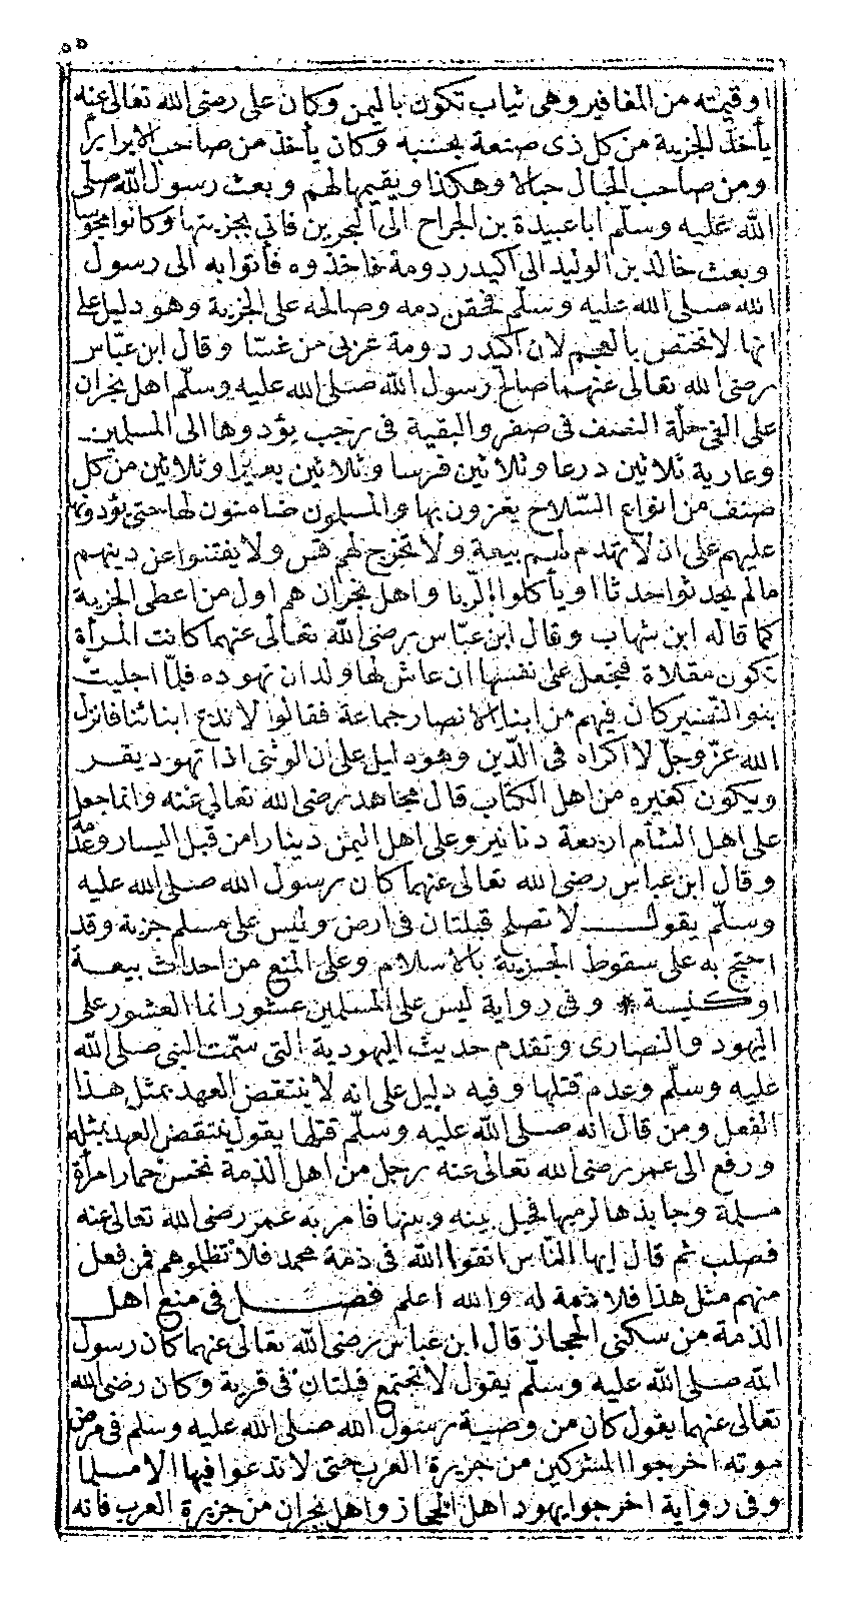 ٥٥
او قيمته من المغافير وهى ثياب تكون باليمن وكان على رضى الله تعالى عنه
يأخذ الجزية من كل ذى صنعة بحسبه وكان يأخذ من صاحب الابرابرا
ومن صاحب الحبال حبالا وهكذا ويقيمها لهم وبعث رسول الله صلى
الله عليه وسلم ابا عبيدة بن الجراح الى البحرين فاتى بجزيتها وكانوا مجوسا
وبعث خالد بن الوليد الى اكيدر دومة فاخذوه فأتوا به الى رسول
الله صلى الله عليه وسلم فحقن دمه وصالحه على الجزية وهو دليل على
انها لا تختص بالعجم لان اكيدر دومة عربى من غسا وقال ابن عباس
رضى الله تعالى عنهما صالح رسول الله صلى الله عليه وسلم اهل نجران
على الفى حلة النصف فى صفر والبقية فى رجب يؤدوها الى المسلمين
وعارية ثلاثين درعا وثلاثين فرسا وثلاثين بعيرا وثلاثين من كل
صنف من انواع السلاح يغزون بها والمسلمون ضامنون لها حتى يؤدوها
عليهم على ان لا تهدم لهم بيعة ولا تخرج لهم قس ولا يفتنوا عن دينهم
مالم يحدثوا حدثا او يأكلوا الربا واهل نجران هم اول من اعطى الجزية
كما قاله ابن شهاب وقال ابن عباس رضى الله تعالى عنهما كانت المرأة
تكون مقلاة فتجعل على نفسها ان عاش لها ولد ان تهوده فلما اجليت
بنو النضير كان فيهم من ابناء الانصار جماعة فقالوا لا ندع ابنائنا فانزل
الله عز وجل لا اكراه فى الدين وهو دليل على ان الوثنى اذا تهود يقر
ويكون كغيره من اهل الكتاب قال مجاهد رضى الله تعالى عنه وانما جعل
على اهل الشام اربعة دنانير وعلى اهل اليمن دينارا من قبل اليسار وعدمه
وقال ابن عباس رضى الله تعالى عنهما كان رسول الله صلى الله عليه
وسلم يقول لا تصلح قبلتان فى ارض وليس على مسلم جزية وقد
احتج به على سقوط الجزية بالاسلام وعلى المنع من احداث بيعة
او كنيسة * وفى رواية ليس على المسلمين عشور انما العشور على
اليهود والنصارى وتقدم حديث اليهودية التى سمت النبى صلى الله
عليه وسلم وعدم قتلها وفيه دليل على انه لا ينتقض العهد بمثل هذا
الفعل ومن قال انه صلى الله عليه وسلم قتلها يقول ينتقض العهد بمثله
ورفع الى عمر رضى الله تعالى عنه رجل من اهل الذمة نخس حمار امرأة
مسلمة وجابذها لرميها فحيل بينه وبينها فامر به عمر رضى الله تعالى عنه
فصلب ثم قال ايها الناس اتقوا الله فى ذمة محمد فلا تظلموهم فمن فعل
منهم مثل هذا فلا ذمة له والله اعلم فصل فى منع اهل
الذمة من سكنى الحجاز قال ابن عباس رضى الله تعالى عنهما كان رسول
الله صلى الله عليه وسلم يقول لا تجتمع قبلتان فى قرية وكان رضى الله
تعالى عنهما يقول كان من وصية رسول الله صلى الله عليه وسلم فى مرض
موته اخرجوا المشركين من جزيرة العرب حتى لا تدعوا فيها الا مسلما
وفى رواية اخرجوا يهود اهل الحجاز واهل نجران من جزيرة العرب فانه